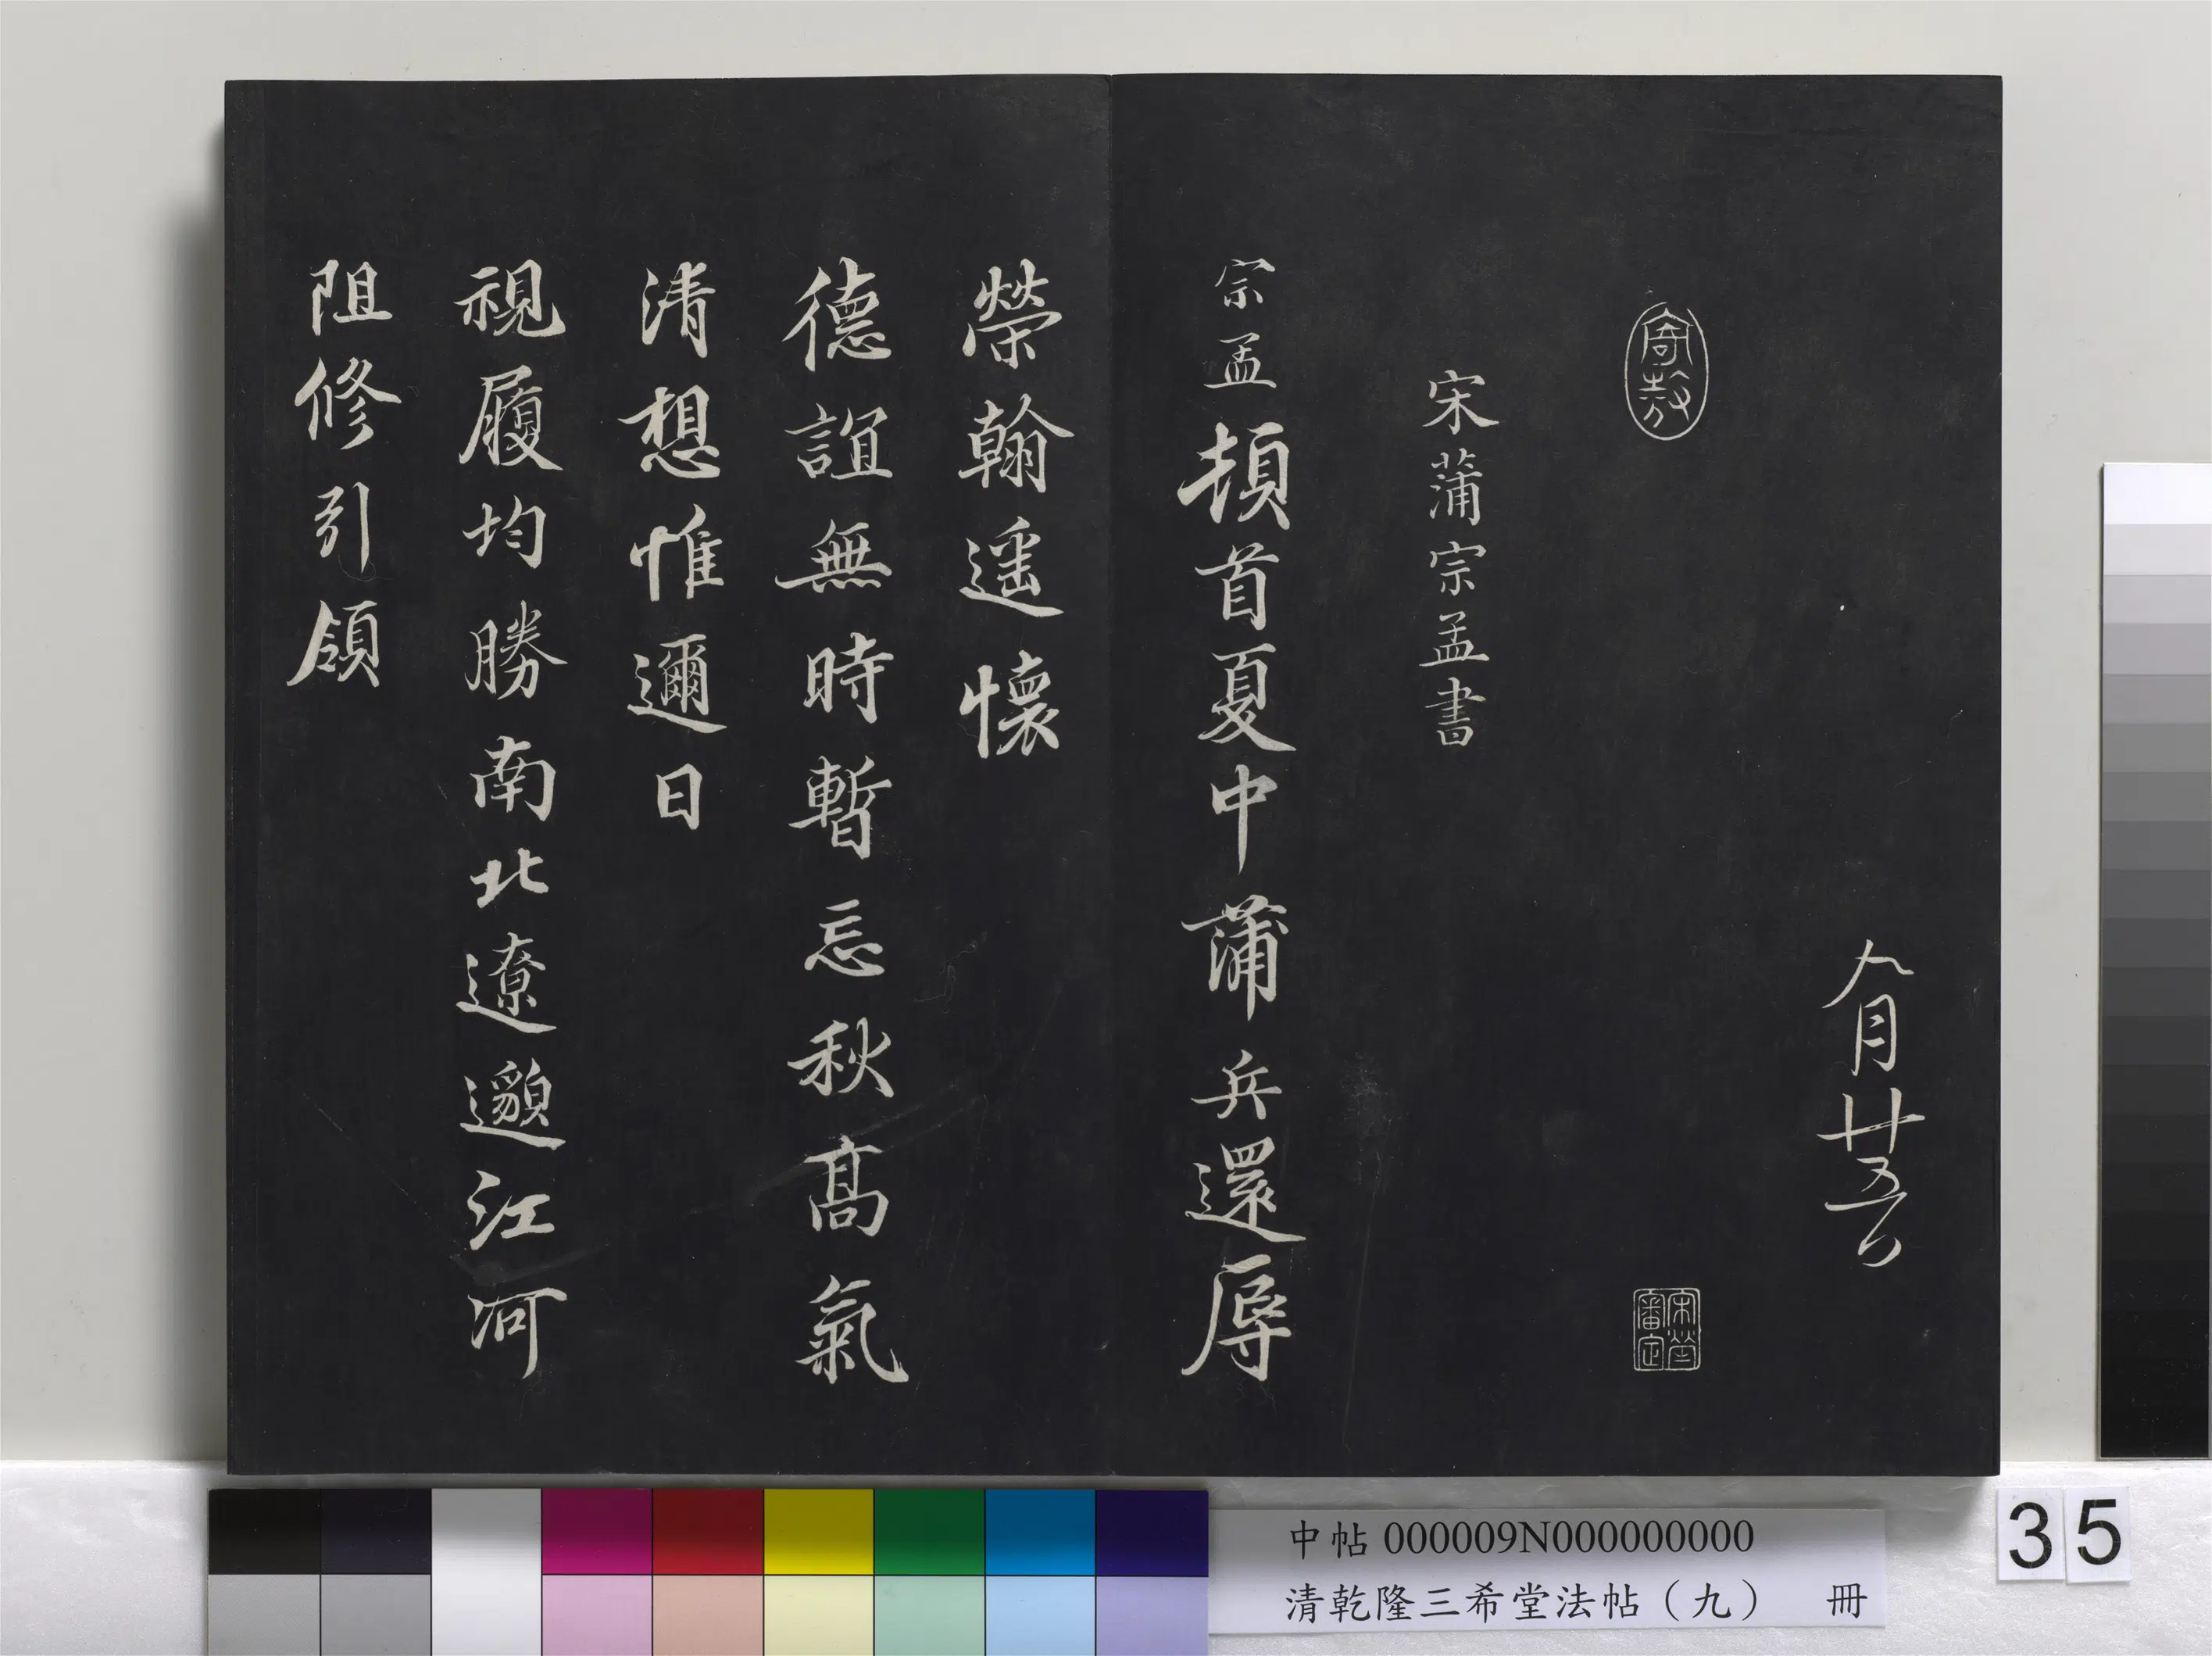 八月廿五日
寄敖
宋犖審定
宋蒲宗孟書
宗孟頓首夏中蒲兵還辱
榮翰遥懷
德誼無時暫忘秋髙氣
清想惟邇日
視履均勝南北遼邈江河
阻修引領
中帖 000009N000000000
清乾隆三希堂法帖（九） 冊
35